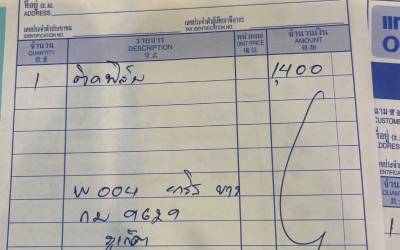 ที่อยู่ (住址)
ADDRESS
เลขประจำตัวประชาชน
IDENTIFICATION NO.
เลขประจำตัวผู้เสียภาษีอากร
TAX IDENTIFICATION NO.
จำนวน
QUANTITY
数量
รายการ
DESCRIPTION
货名
หน่วยละ
UNIT PRICE
จำนวนเงิน
AMOUNT
1 ติดฟิล์ม 1,400
W 004 ยาริส ขาว
กม 9629
ภูเก็ต
CUSTOME
ที่อยู่
ADDRESS
IDENTIFICATI
จำนวน
QUANTITY
数量
1